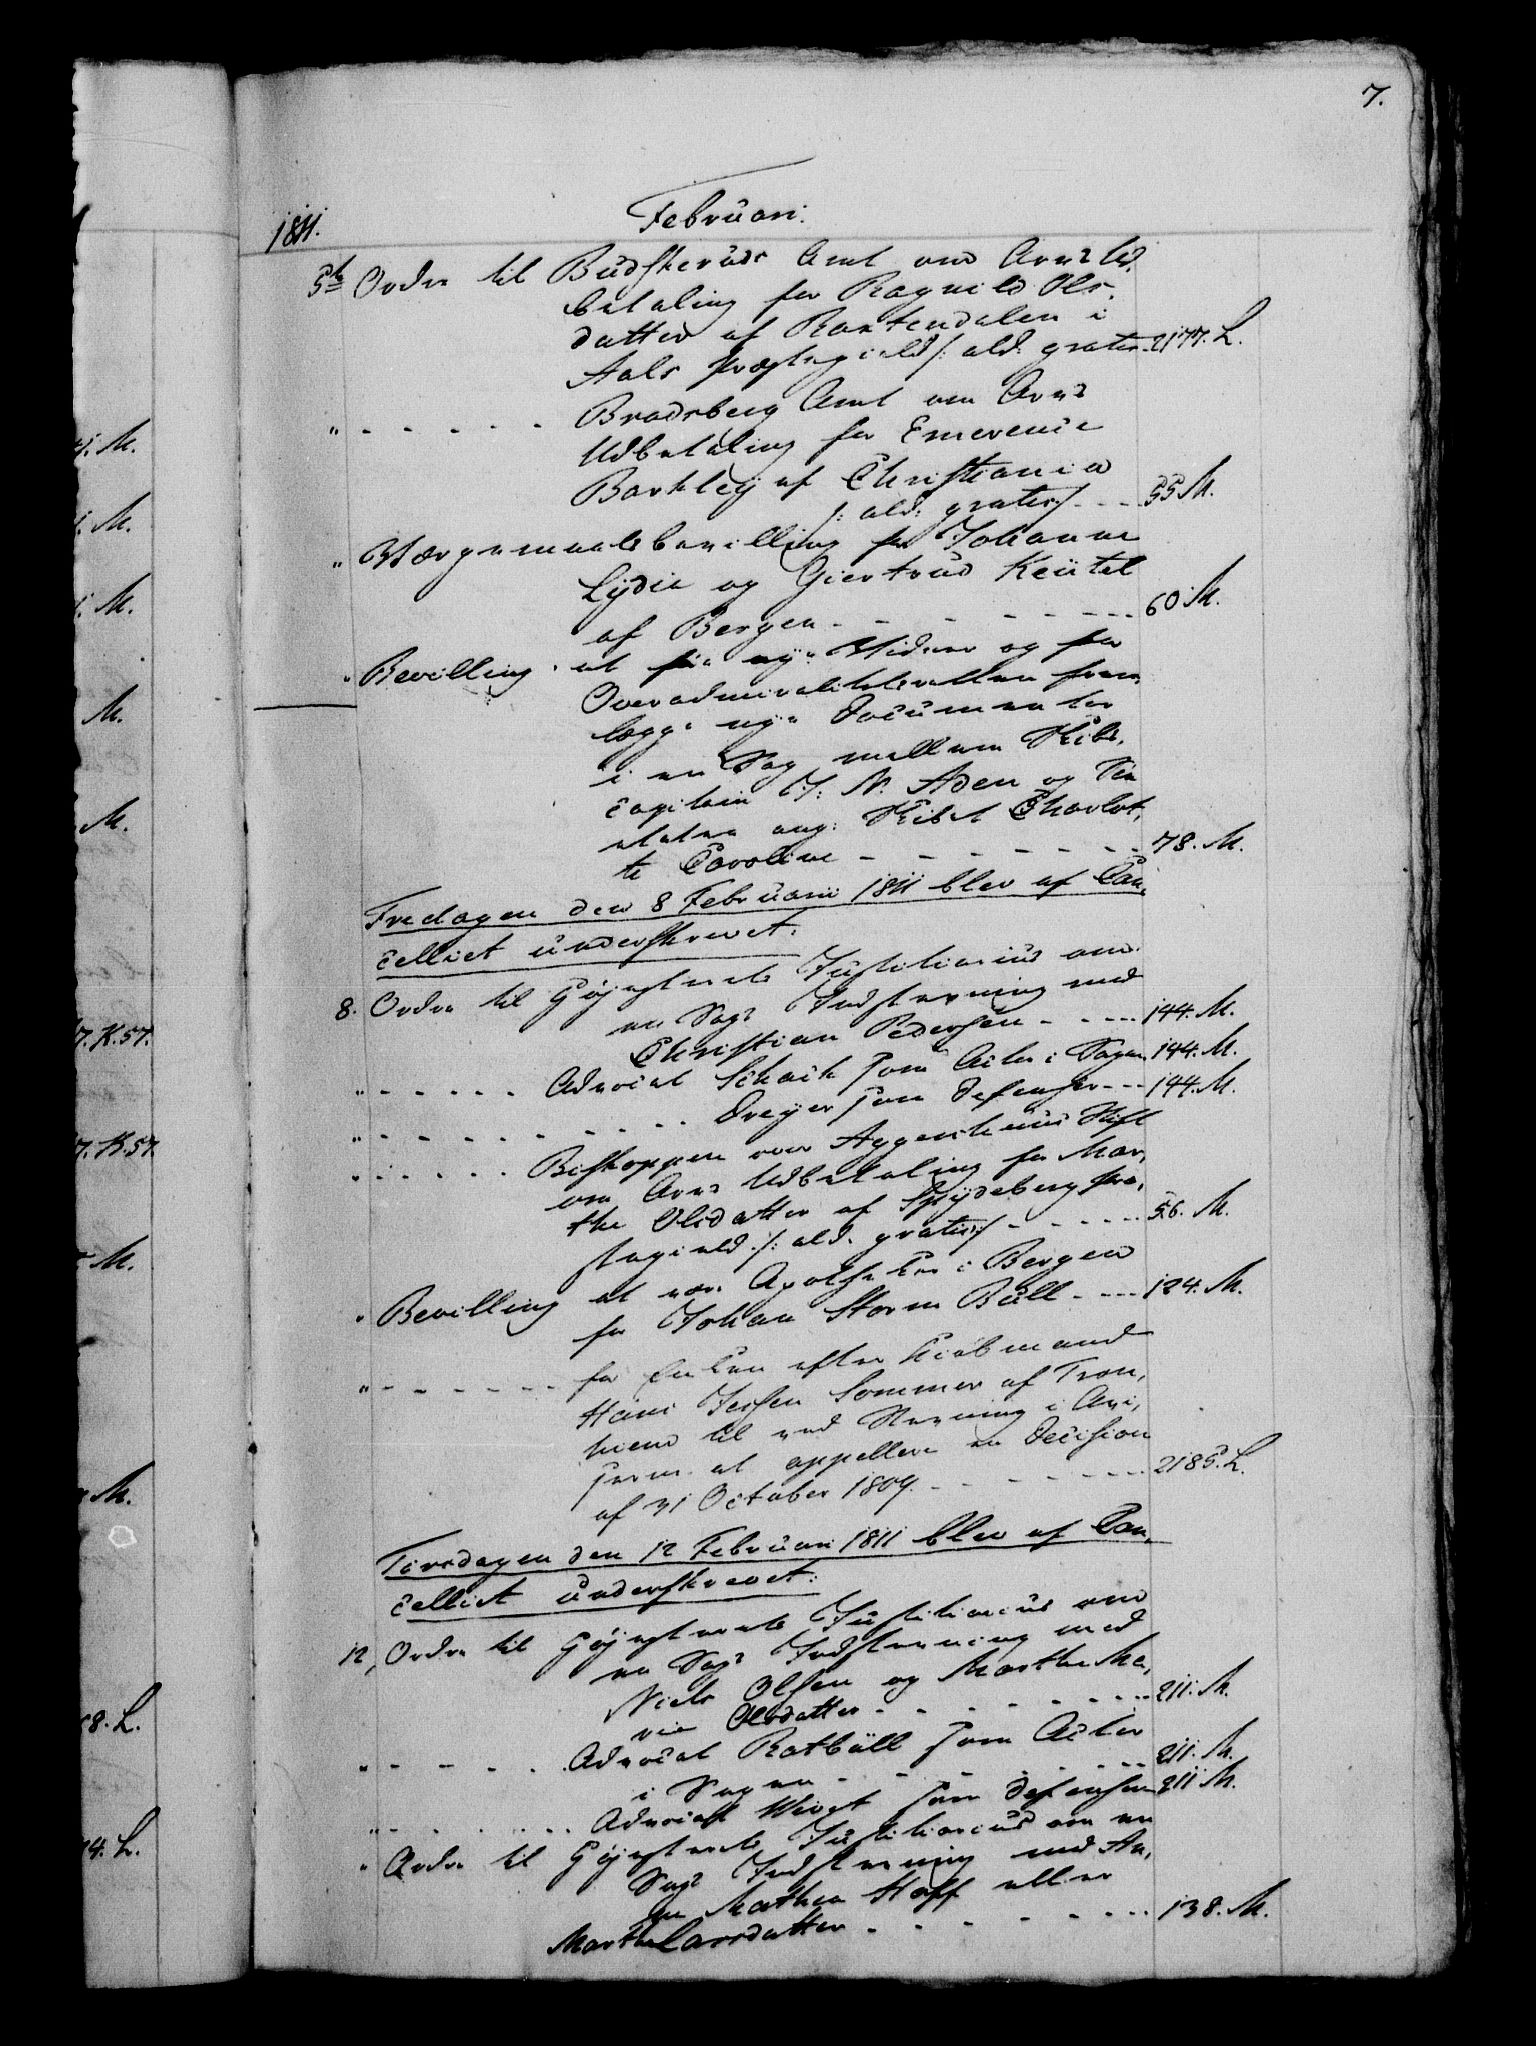 7.
1811.
Februari.
5te Ordre til Budskeruds Amt om Arvs Ud,
betaling for Ragnild Ols,
datter af Rartendalen i
Aals Præstegield /: ald: gratis. 2177. L.
" - - - - - Bradsberg Amt om Arvs
Udbetaling for Emerence
Barkley af Christiania
/: ald: gratis :/ - - - 55 M.
" Værgemaalsbevilling for Johanne
Lydie og Giertrud Keutel
af Bergen - - - - - - 60 M.
" Bevilling at føre nye Vidner og for
Overadmiralitetsretten frem,
lægge nye Documenter
i en Sag mellem Skibs,
capitain J: N. Aden og
ang: Skibet Charlot,
te Caroline - - - - - - 78. M.
Fredagen den 8 Februarii 1811 blev af Can,
celliet underskrevet.
8. Ordre til Høiesterets Justitiarius om
en Sags Indstevning med
Christian Pedersen - - - - 144. M.
" - - - - - Advocat Schack som Actor i Sagen 144. M.
" - - - - - - - - - - Dreyer som Defensor - - - 144. M.
" - - - - - Biskoppen over Aggershuus Stift
om Arvs Udbetaling for Mar,
the Olsdatter af Spydeberg Præ,
stegield /: ald. gratis :/ - - - - - 56. M.
" Bevilling at være Apotheker i Bergen
for Johan Storm Bull - - - 124. M.
" - - - - - - for Enken efter Kiøbmand
Hans Jensen Sommer af Tron,
hiem til ved Stevning i Ani,
ferm. at appellere en Decision
af 31 October 1809. - - - - - - - 2185. L.
Tirsdagen den 12 Februari 1811 blev af Can,
celliet underskrevet:
12, Ordre til Høiesterets Justitiarius om
en Sags Indstevning med
Niels Olsen og Marthe Ma,
rie Olsdatter - - - - - - - 211. M.
" - - - - - Advocat Rotbüll som Actor
i Sagen - - - - - - - 211. M.
" - - - - - - Advocat Weigt som Defensor 211 M.
" Ordre til Høiesterets Justitiarius om en
Sags Indstevning med An,
ne Mathea Hoff eller
Marthe Larsdatter - - - - - - - 138. M.
M.
M.
M.
M.
M.
7. K. 57.
7. K. 57.
M.
M.
8. L.
4. L.